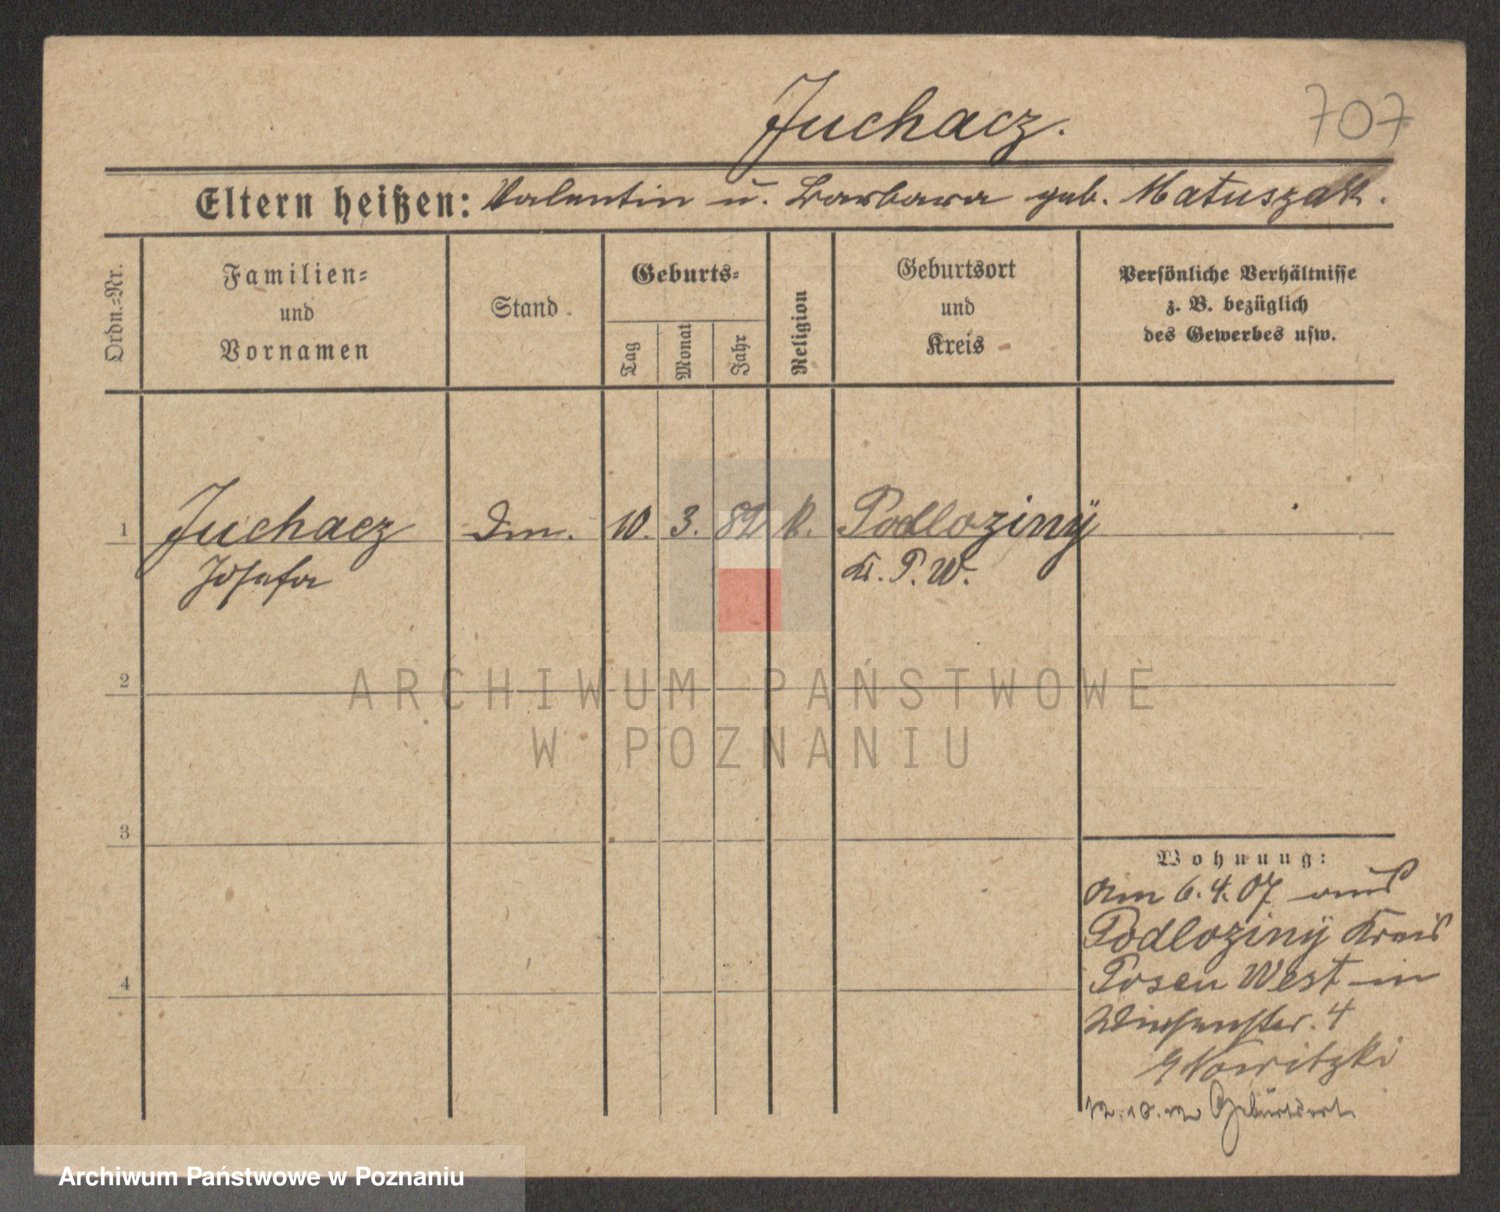 Juchacz.
707
Eltern heißen: Valentin u. Barbara geb. Matuszak.
Ordn.-Nr.
Familien-
und
Vornamen
Stand
Geburts-
Tag
Monat
Jahr
Religion
Geburtsort
und
Kreis
Persönliche Verhältnisse
z. B. bezüglich
des Gewerbes usw.
1 Juchacz 10. 3. 82 k. Podloziny
Josefa Kr. P. W.
2
ARCHIWUM PAŃSTWOWE
W POZNANIU
3
Wohnung:
am 6.4.07 aus
Podloziny Kreis
4
Posen West in
4
Nowitzki
Geburtsort
Archiwum Państwowe w Poznaniu